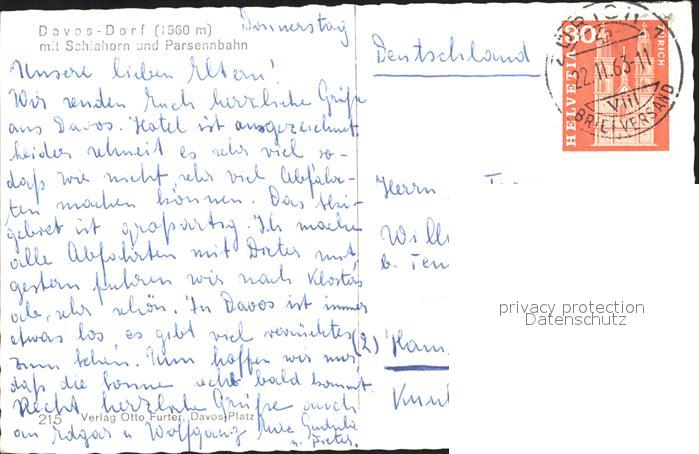 Donnerstag
Davos-Dorf (1560 m)
mit Schiahorn und Parsennbahn
Unsere lieben Eltern!
Wir senden Euch herrliche Grüße
aus Davos. Hotel ist ausgezeichnet
leider schneit es sehr viel so-
daß wir nicht sehr viel Abfahr-
ten machen können. Das Ski-
gebiet ist großartig. Ich mache
alle Abfahrten mit Dieter mit
gestern fuhren wir nach Klosters
ab, sehr schön. In Davos ist immer
etwas los, es gibt viel verrücktes
zum sehen. Nun hoffen wir nur
daß die Sonne recht bald kommt.
Recht herzliche Grüße auch
an Edgar u Wolfgang Eure Gudula
u. Dieter.
215 Verlag Otto Furter, Davos-Platz
Deutschland
HELVETIA
30
ZÜRICH
22.11.63-11
VIII
BRIEFVERSAND
Herrn
Will
b. Ten
(2) Ham
privacy protection
Datenschutz